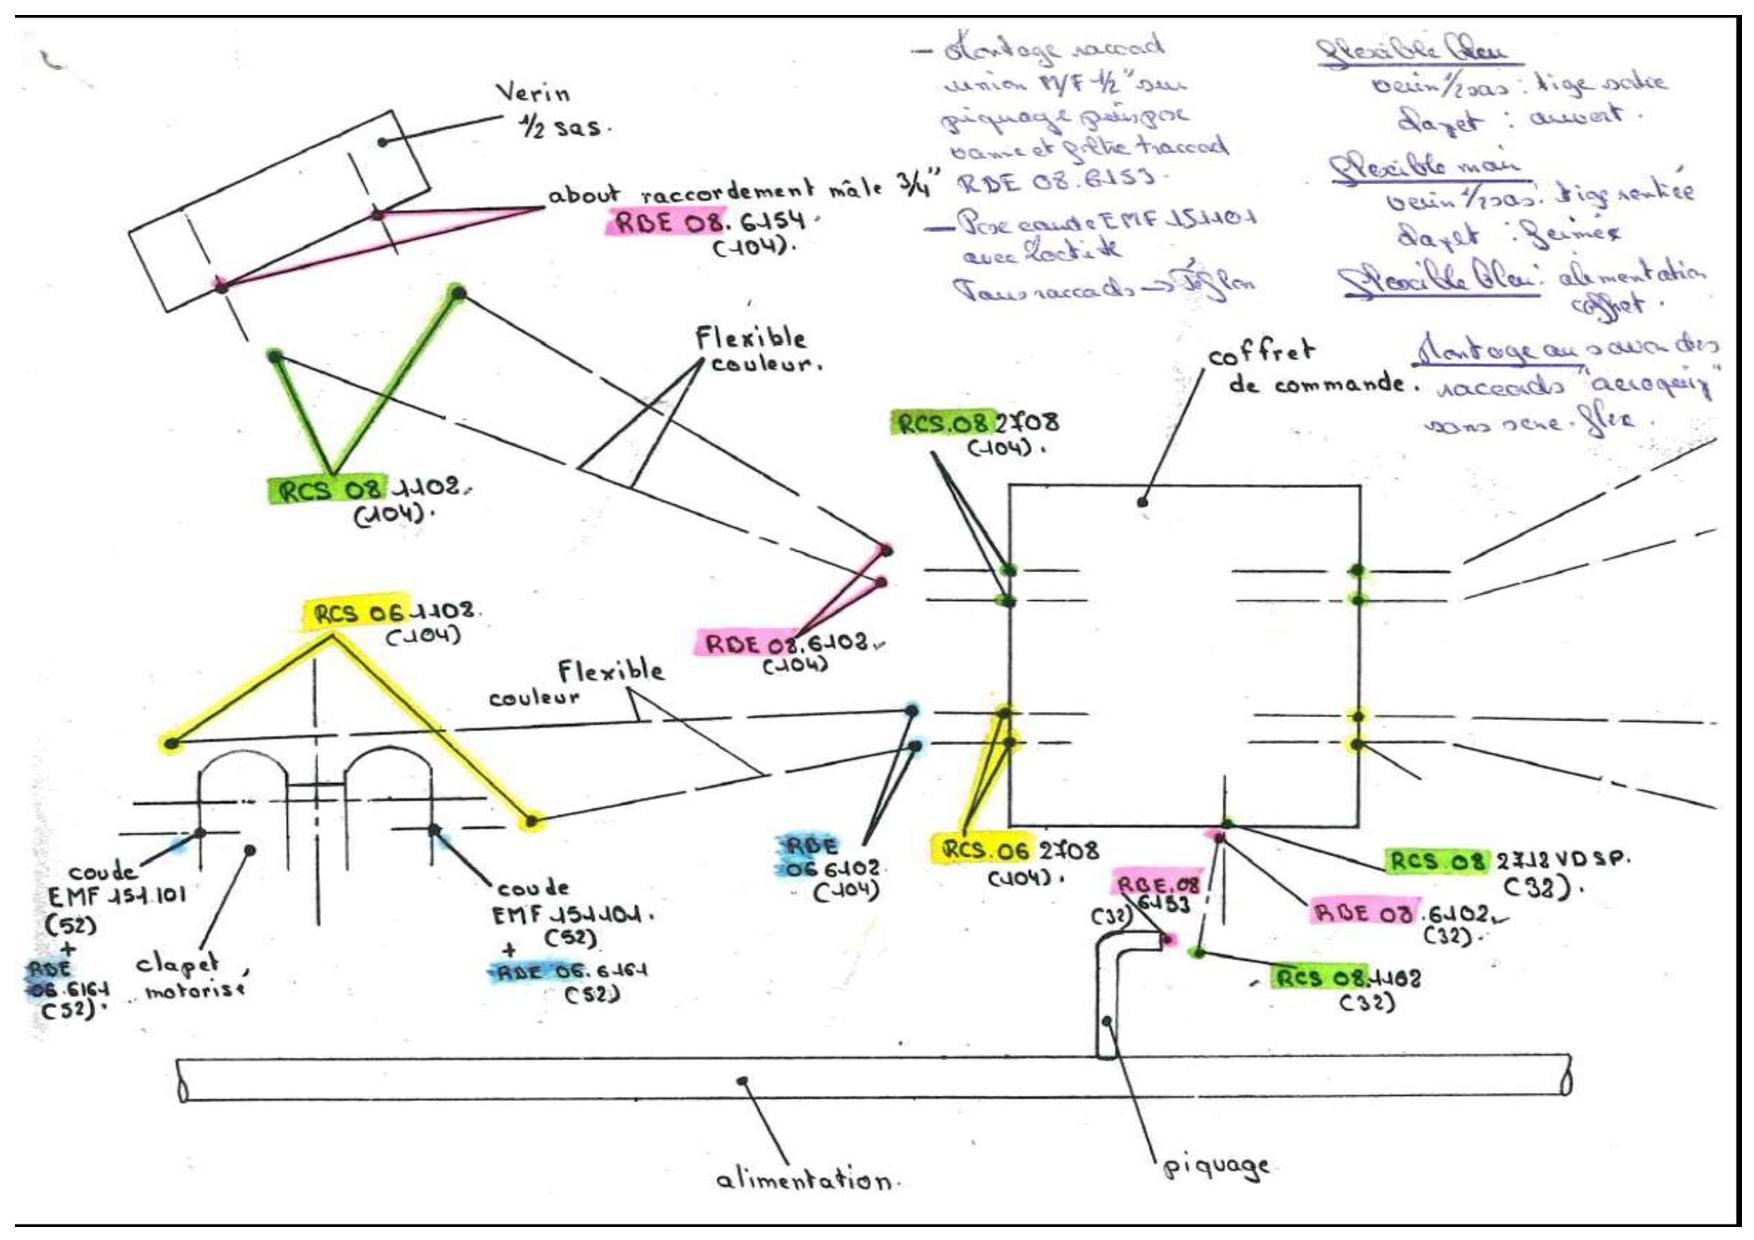 - Montage raccord
union M/F 1/2" sur
piquage puis pose
vanne et filtre + raccord
RBE 08.6153.
- Pose coude EMF 151101
avec Loctite
Tous raccords → Téflon
Flexible bleu
verin 1/2 sas : tige sortie
clapet : ouvert.
Flexible noir
verin 1/2 sas : tige rentrée
clapet : fermée
Flexible bleu : alimentation
coffret.
Montage au savon des
raccords "aeroquip"
sans
Verin
1/2 sas.
about raccordement mâle 3/4"
RBE 08.6154
(104).
Flexible
couleur.
coffret
de commande.
RCS.08 2708
(104).
RCS 08 1102.
(104).
RCS 06 1102.
(104)
RBE 08.6102.
(104)
Flexible
couleur
RBE
06 6102.
(104)
RCS.06 2708
(104).
RCS 08 2712 VDSP.
(32).
RBE.08
6153
(32)
RBE 08.6102
(32).
RCS 08.1102
(32)
coude
EMF 151.101
(52)
+
RBE
06.6161
(52).
clapet
motorisé
coude
EMF 151.101.
(52)
+
RBE 06.6161
(52)
alimentation.
piquage